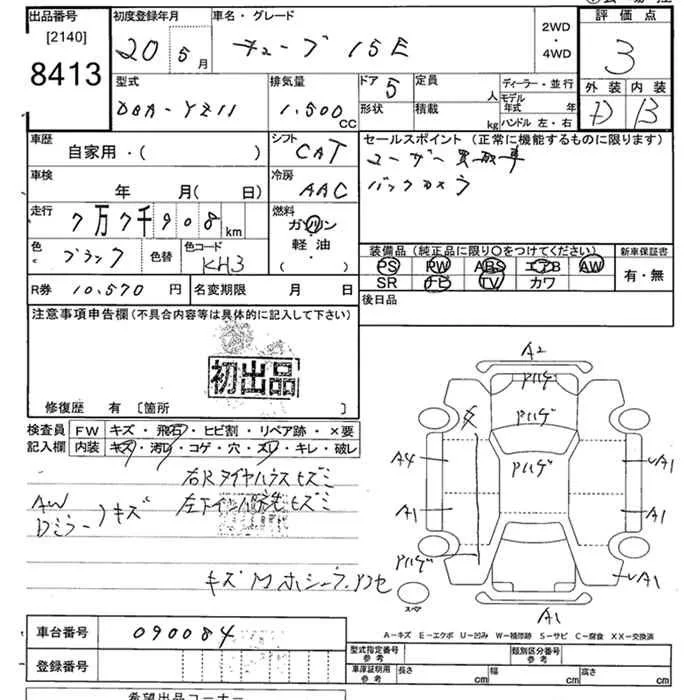 出品番号 初度登録年月 車名・グレード 2WD・4WD 評価点
[2140] 8413 20 5月 キューブ 15E 3
型式 排気量 ドア 5 定員 人 ディーラー・並行 外装 内装
DBA-YZ11 1,500 CC 形状 積載 kg モデル年式 年 D B
ハンドル 左・右
車歴 シフト セールスポイント(正常に機能するものに限ります)
自家用・( ) CAT ユーザー買取車
車検 冷房 バックカメラ
年 月(日) AAC
走行 7万7千908km 燃料 ガソリン・軽油・( )
色 ブラック 色替 色コード KH3 装備品(純正品に限り○をつけてください) 新車保証書
PS RW ABS エアB AW 有・無
SR ナビ TV カワ
R券 10,570円 名変期限 月 日 後日品
注意事項申告欄(不具合内容等は具体的に記入して下さい)
初出品
修復歴 有 〔箇所 〕
検査員記入欄 FW キズ・飛石・ヒビ割・リペア跡・×要
内装 キズ・汚レ・コゲ・穴・スレ・キレ・破レ
右Rタイヤハウスヒズミ
AW Dミラー キズ
A2
アハゲ
アハゲ
アハゲ
A4 A1
A1 A1
アハゲ A1
スペア A1
A-キズ E-エクボ U-凹み W-補修跡 S-サビ C-腐食 XX-交換済
車台番号 090084
型式指定番号 参考 類別区分番号 参考
登録番号 車庫証明用 参考 長さ cm 幅 cm 高さ cm
希望出品コーナー